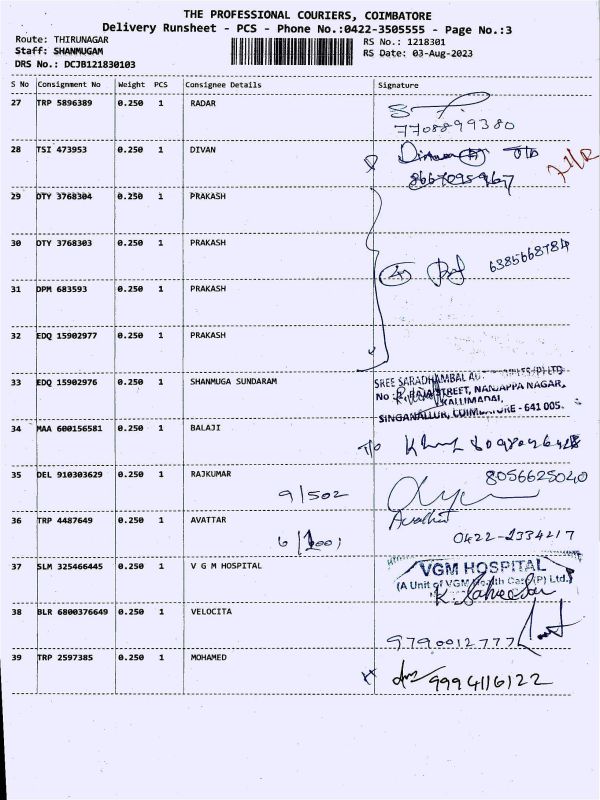 THE PROFESSIONAL COURIERS, COIMBATORE
Delivery Runsheet - PCS - Phone No.:0422-3505555 - Page No.:3
Route: THIRUNAGAR
RS No.: 1218301
Staff: SHANMUGAM
RS Date: 03-Aug-2023
DRS No.: DCJB121830103
S No Consignment No Weight PCS Consignee Details Signature
27 TRP 5896389 0.250 1 RADAR
7708899380
28 TSI 473953 0.250 1 DIVAN
8667095967
29 DTY 3768304 0.250 1 PRAKASH
30 DTY 3768303 0.250 1 PRAKASH
6385668784
31 DPM 683593 0.250 1 PRAKASH
32 EDQ 15902977 0.250 1 PRAKASH
33 EDQ 15902976 0.250 1 SHANMUGA SUNDARAM
SREE SARADHAMBAL
STREET, NANJAPPA NAGAR,
KALLIMADAI,
SINGANALLUR, COIMBATORE - 641 005.
34 MAA 600156581 0.250 1 BALAJI
35 DEL 910303629 0.250 1 RAJKUMAR 9/502 8056625040
36 TRP 4487649 0.250 1 AVATTAR
0422-2334217
37 SLM 325466445 0.250 1 V G M HOSPITAL
VGM HOSPITAL
(A Unit of VGM Health Care (P) Ltd.)
38 BLR 6800376649 0.250 1 VELOCITA
9790012777
39 TRP 2597385 0.250 1 MOHAMED
9994116122